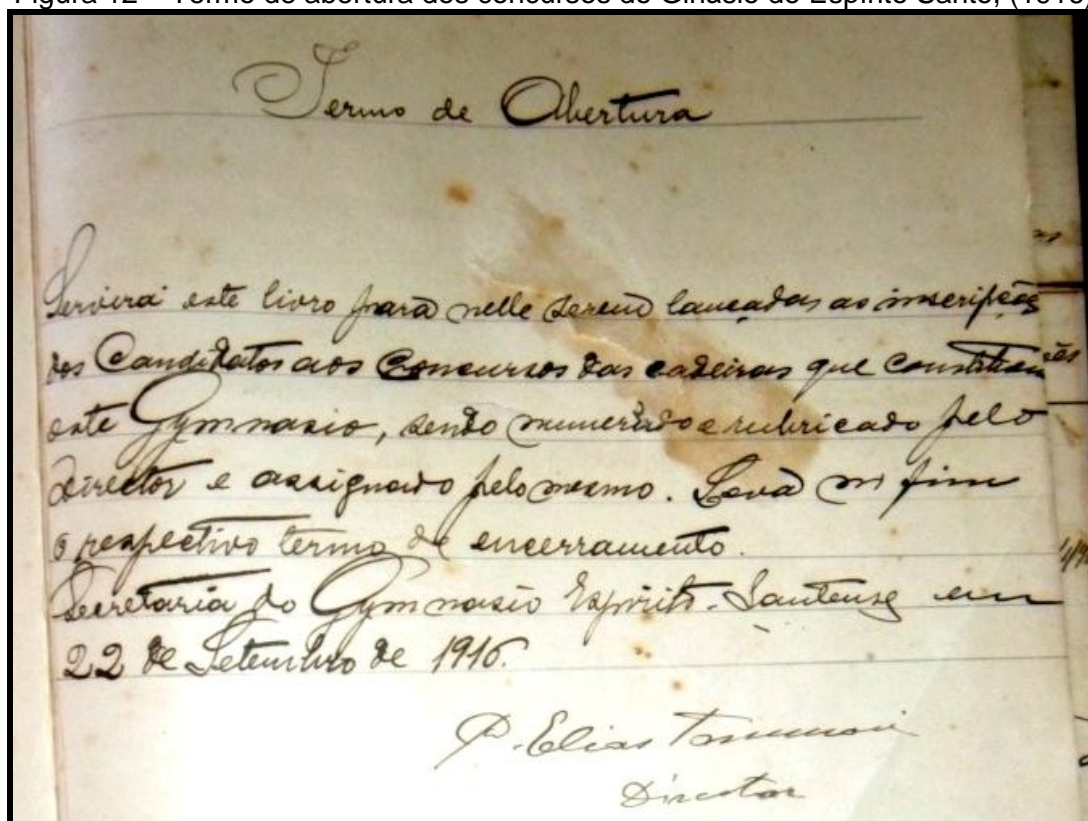 Figura 12 – Termo de abertura dos concursos do Ginásio do Espírito Santo, (1916)
Termo de Abertura
Servirá este livro para nelle serem lançadas as inscripções
dos Candidatos aos Concursos das cadeiras que constituem
este Gymnasio, sendo numerado e rubricado pelo
director e assignado pelo mesmo. Leva no fim
o respectivo termo de encerramento.
Secretaria do Gymnasio Espirito-Santense em
22 de Setembro de 1916.
P. Elias Tommasi
Director